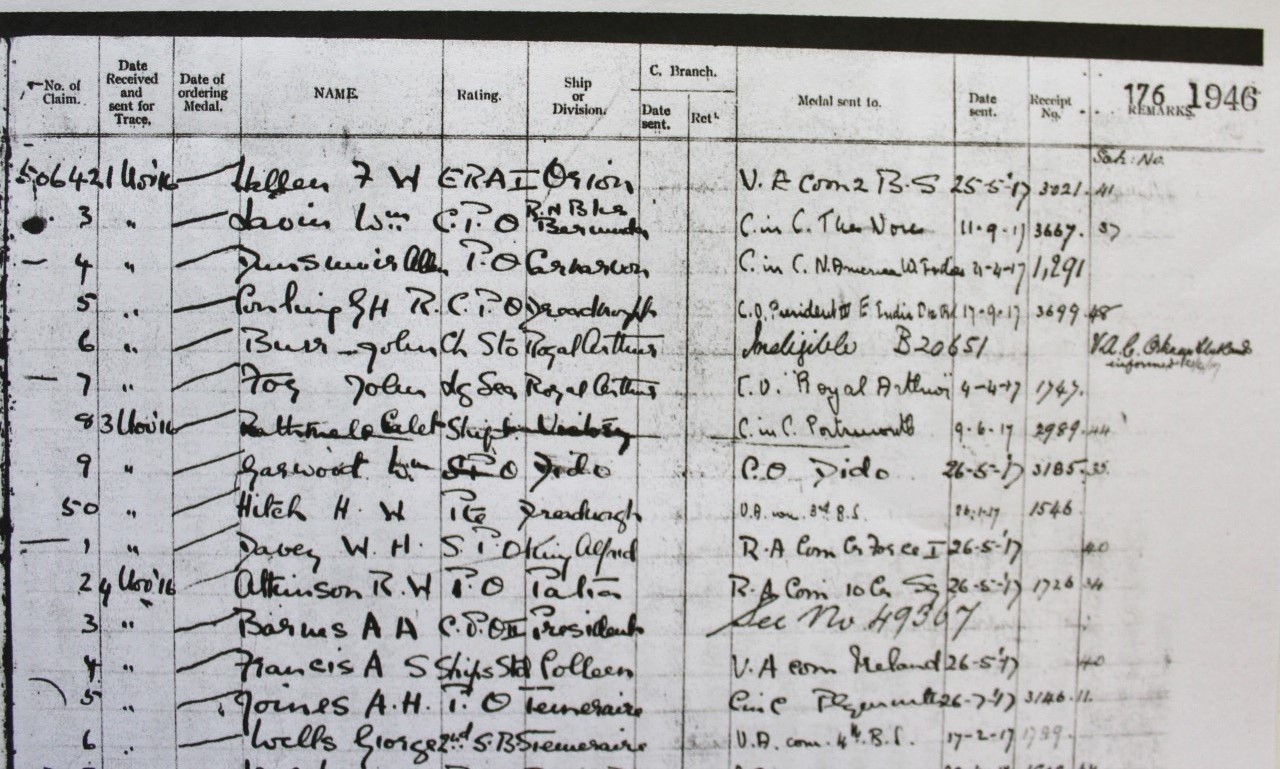 No. of Claim. Date Received and sent for Trace. Date of ordering Medal. NAME. Rating. Ship or Division. C. Branch. Date sent. Ret. Medal sent to. Date sent. Receipt No. REMARKS. 176 1946
50642 1 Nov 16 F W ERA I Orion V. A Com 2 B.S 25-5-17 3021 41
3 " Wm C.P.O R.N Bks Bermuda C. in C. The Nore 11-9-17 3667. 37
4 " P.O Carnarvon C. in C. N. America W. Indies 21-4-17 1,291
5 " G H R. C. P. O Dreadnought C.O. President III 17-9-17 3699 48
6 " Burr John Ch Sto Royal Arthur Ineligible B20651 informed
7 " Foy John Ldg Sea Royal Arthur C.O. Royal Arthur 4-4-17 1747.
8 3 Nov 16 Victory C. in C. Portsmouth 9-6-17 2989 44
9 " Garwood Wm S.P.O Dido C.O Dido 26-5-17 3185. 35
50 " Hitch H. W Pte Dreadnough V.A. com. 3rd B.S. 1546
1 " Davey W. H. S. P. O King Alfred R.A Com Cr Force I 26-5-17 40
2 4 Nov 16 Atkinson R. W P. O R. A Com 10 Cr Sq 26-5-17 1726 34
3 " Barnes A A C.P.O II President See No 49367
4 " Francis A S Ships Std Colleen V. A com Ireland 26-5-17 40
5 " Joines A.H. P. O Temeraire C in C Plymouth 26-7-17 3146 11.
6 " Wells George 2nd S.B.S Temeraire V.A. com. 4th B.S. 17-2-17 1799.